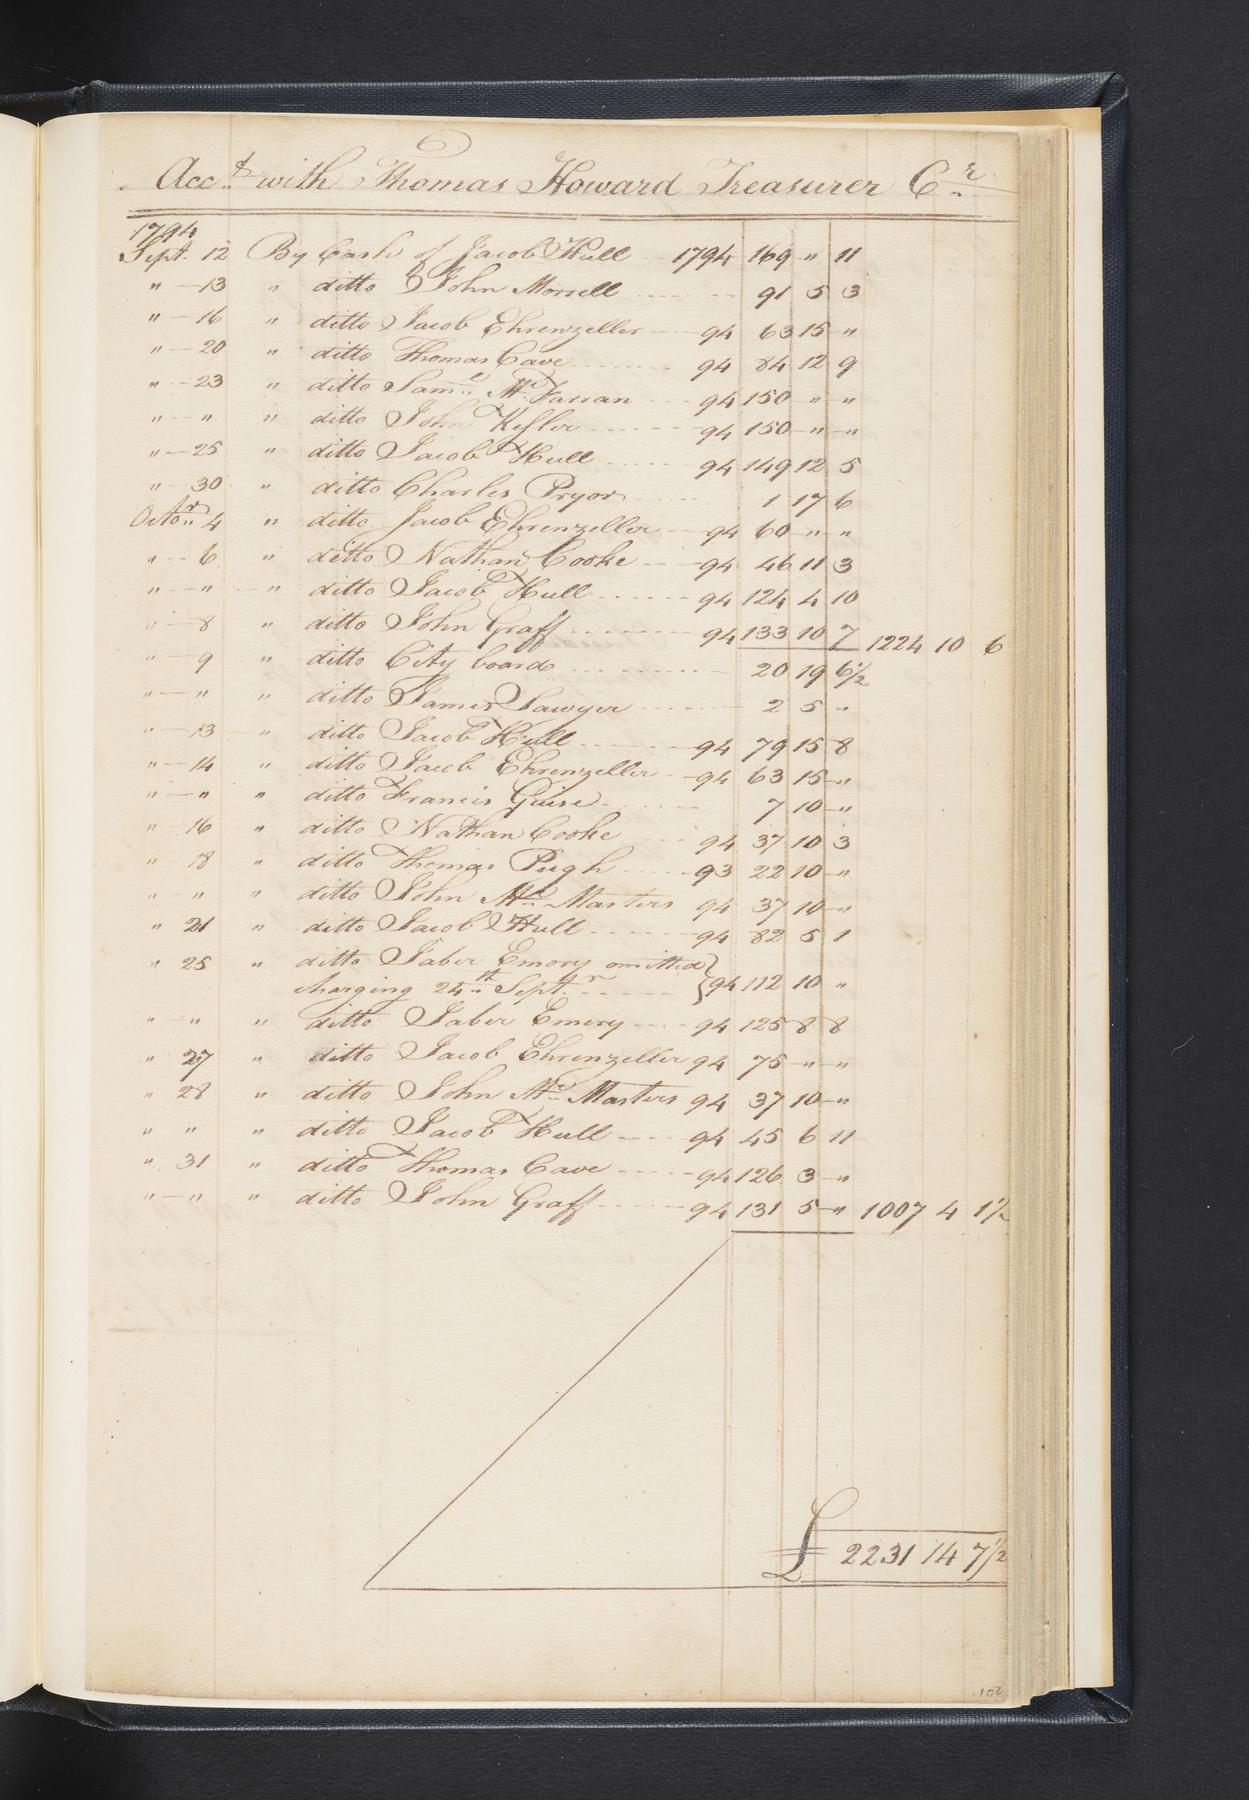 Acct. with Thomas Howard Treasurer Cr.
1794
Sept. 12 By Cash of Jacob Hull 1794 169 " 11
" 13 " ditto John Morrell 91 5 3
" 16 " ditto Jacob Ehrenzeller 94 63 15 "
" 20 " ditto Thomas Cave 94 84 12 9
" 23 " ditto Saml. Mc. Farran 94 150 " "
" " " ditto John Kesler 94 150 " "
" 25 " ditto Jacob Hull 94 149 12 5
" 30 " ditto Charles Pryor 1 17 6
Octor. 4 " ditto Jacob Ehrenzeller 94 60 " "
" 6 " ditto Nathan Cooke 94 46 11 3
" " " ditto Jacob Hull 94 124 4 10
" 8 " ditto John Graff 94 133 10 7 1224 10 6
" 9 " ditto City board 20 19 6½
" " " ditto James Sawyer 2 5 "
" 13 " ditto Jacob Hull 94 79 15 8
" 14 " ditto Jacob Ehrenzeller 94 63 15 "
" " " ditto Francis Guise 7 10 "
" 16 " ditto Nathan Cooke 94 37 10 3
" 18 " ditto Thomas Pugh 93 22 10 "
" " " ditto John Mc. Masters 94 37 10 "
" 21 " ditto Jacob Hull 94 82 5 1
" 25 " ditto Jaber Emory omitted
charging 24th. Septr. 94 112 10 "
" " " ditto Jaber Emery 94 125 8 8
" 27 " ditto Jacob Ehrenzeller 94 75 " "
" 28 " ditto John Mc. Masters 94 37 10 "
" " " ditto Jacob Hull 94 45 6 11
" 31 " ditto Thomas Cave 94 126 3 "
" " " ditto John Graff 94 131 5 " 1007 4 1½
£ 2231 14 7½
102